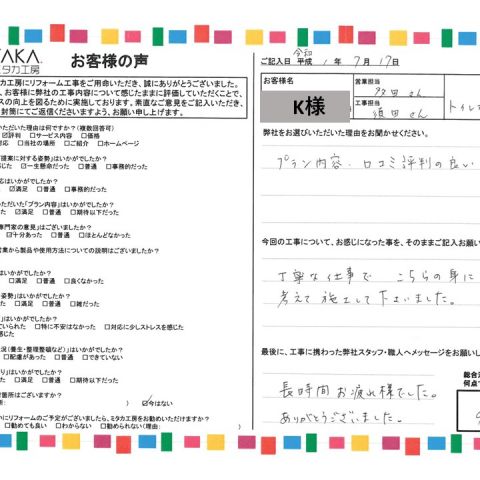 TAKA.
ミタカ工房
お客様の声
カ工房にリフォーム工事をご用命いただき、誠にありがとうございました。
、お客様に弊社の工事内容について感じたままに評価していただくことで、
スの向上を図るために実施しております。素直なご意見をご記入いただき、
封筒にてご返信くださいますよう、お願い申し上げます。
いただいた理由は何ですか？(複数回答可)
☑評判 □サービス内容 □価格
対応 □当社の場所 □ご紹介 □ホームページ
提案に対する姿勢」はいかがでしたか？
じた ☑一生懸命だった □普通 □事務的だった
応はいかがでしたか？
☑満足 □普通 □事務的だった
いただいた「プラン内容」はいかがでしたか？
□満足 □普通 □期待以下だった
専門家の意見」はございましたか？
☑十分あった □普通 □ほとんどなかった
営業から製品や使用方法についての説明はございましたか？
」はいかがでしたか？
□満足 □普通 □良くなかった
姿勢」はいかがでしたか？
□満足 □普通 □雑だった
はいかがでしたか？
ていられた □特に不安はなかった □対応に少しストレスを感じた
況(養生・整理整頓など)」はいかがでしたか？
□配慮があった □普通 □できていない
り」はいかがでしたか？
□満足 □普通 □期待以下だった
箇所はございますか？
) ☑今はない
いにリフォームのご予定がございましたら、ミタカ工房をお勧めいただけますか？
□勧めても良い □わからない □勧められない(理由:
令和
ご記入日 平成 1年 7月 17日
お客様名
K様
営業担当
工事担当
須田さん
トイレ
弊社をお選びいただいた理由をお聞かせください。
プラン内容、口コミ評判の良い
今回の工事について、お感じになった事を、そのままご記入お願い
丁寧な仕事で こちらの身に
考えて施工して下さいました。
最後に、工事に携わった弊社スタッフ・職人へメッセージをお願いし
総合
何点で
長時間お疲れ様でした。
ありがとうございました。